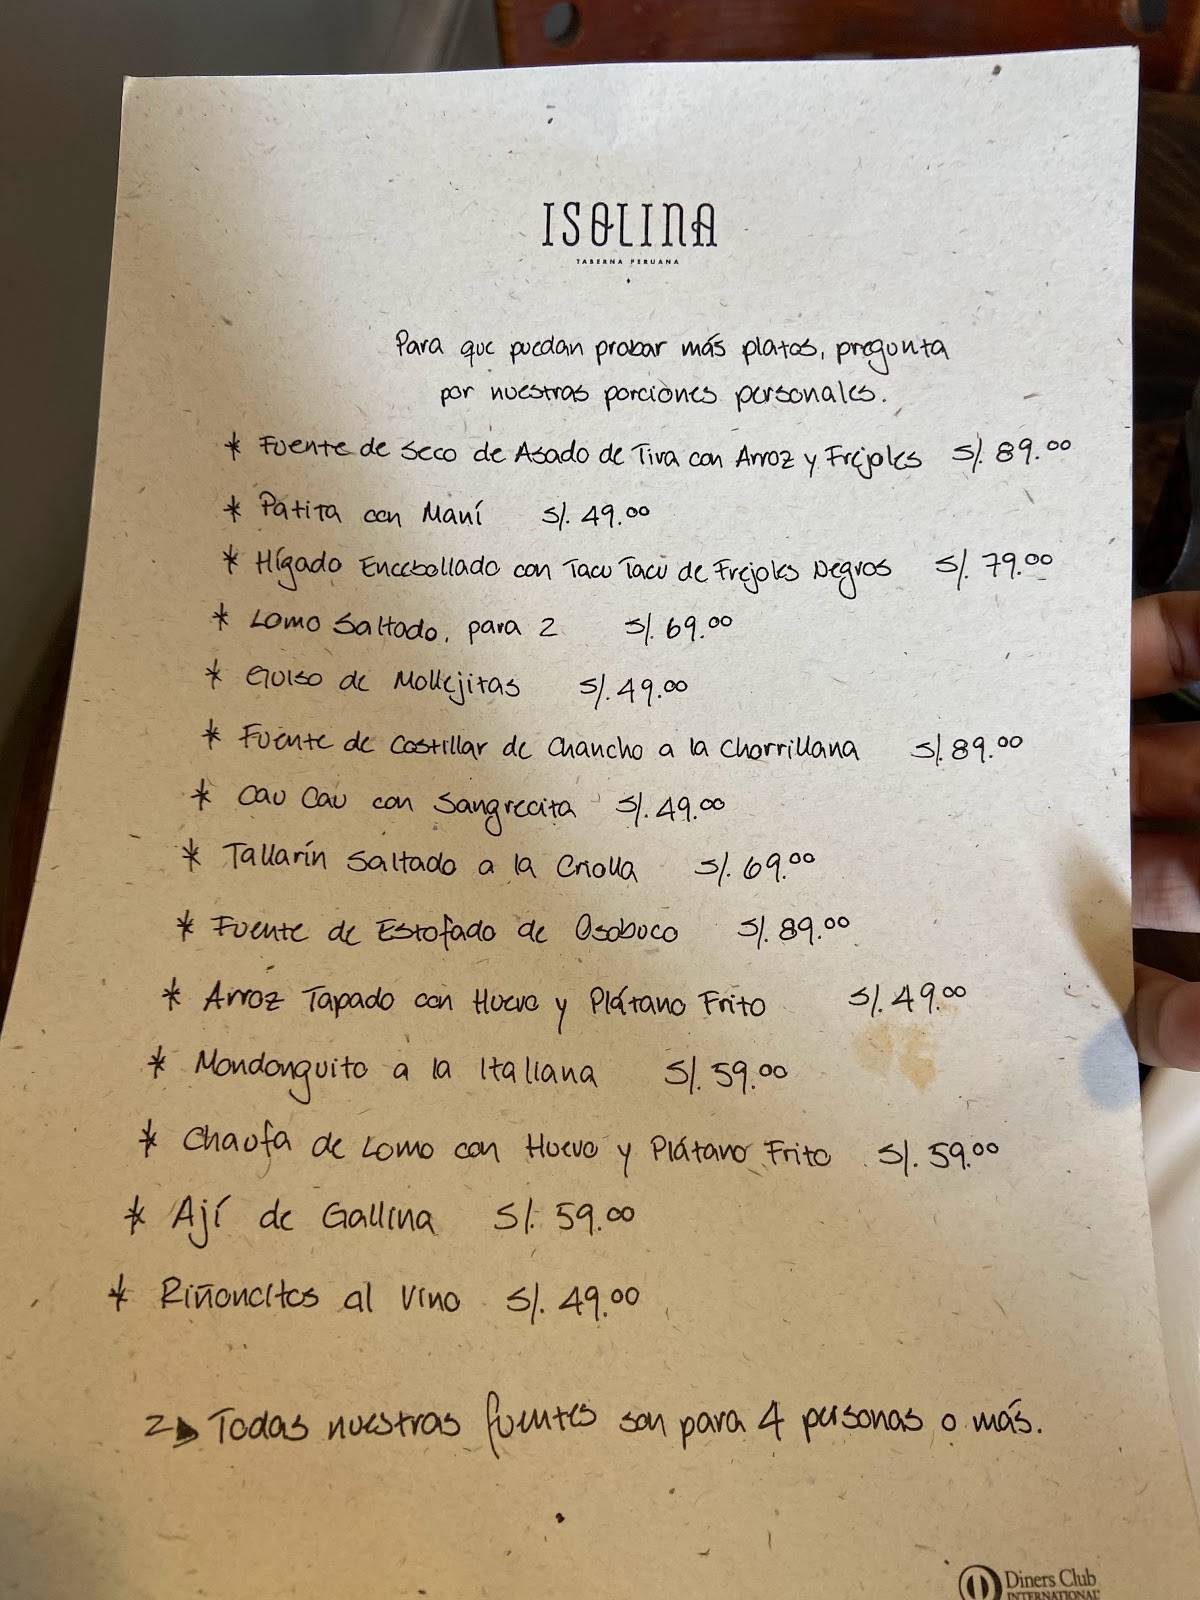 ISOLINA
TABERNA PERUANA
Para que puedan probar más platos, pregunta
por nuestras porciones personales.
* Fuente de Seco de Asado de Tira con Arroz y Frejoles S/. 89.00
* Patita con Maní S/. 49.00
* Hígado Encebollado con Tacu Tacu de Frejoles Negros S/. 79.00
* Lomo Saltado, para 2 S/. 69.00
* Guiso de Mollejitas S/. 49.00
* Fuente de Costillar de Chancho a la Chorrillana S/. 89.00
* Cau Cau con Sangrecita S/. 49.00
* Tallarín Saltado a la Criolla S/. 69.00
* Fuente de Estofado de Osobuco S/. 89.00
* Arroz Tapado con Huevo y Plátano Frito S/. 49.00
* Mondonguito a la Italiana S/. 59.00
* Chaufa de Lomo con Huevo y Plátano Frito S/. 59.00
* Ají de Gallina S/. 59.00
* Riñoncitos al Vino S/. 49.00
Todas nuestras fuentes son para 4 personas o más.
Diners Club
INTERNATIONAL